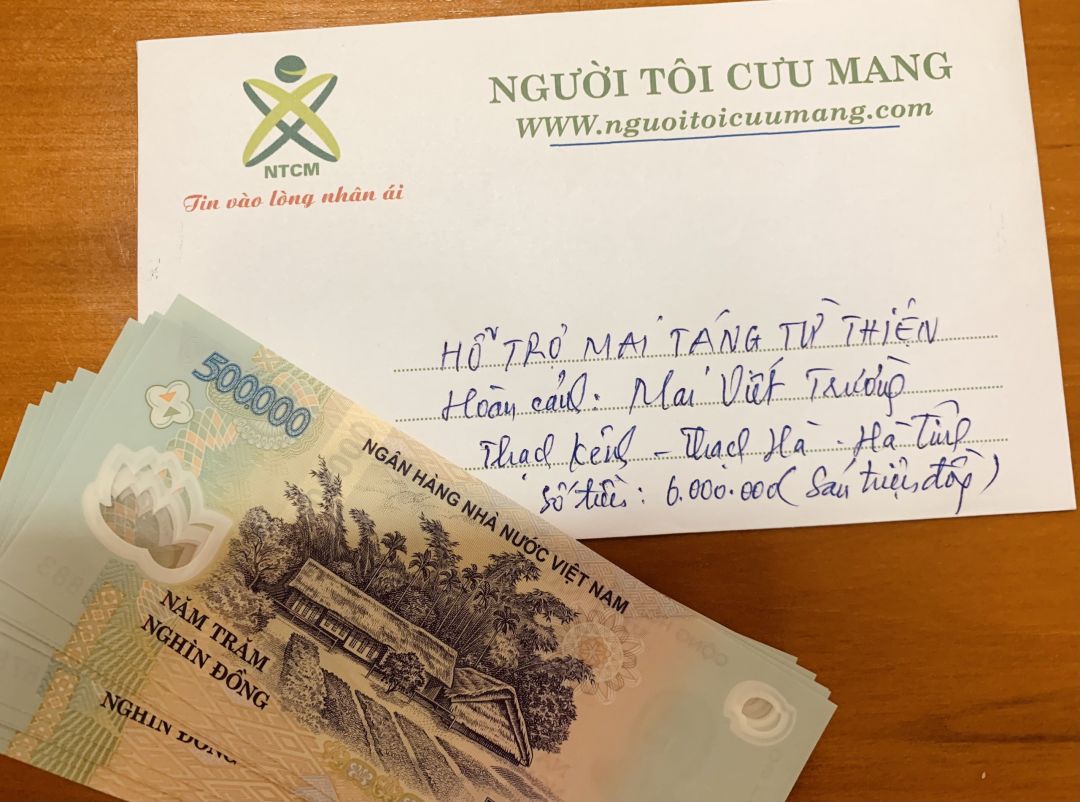 NTCM
Tin vào lòng nhân ái
NGƯỜI TÔI CƯU MANG
WWW.nguoitoicuumang.com
HỖ TRỢ MAI TÁNG TỪ THIỆN
Hoàn cảnh: Mai Viết Trường
Thạch Kênh - Thạch Hà - Hà Tĩnh
Số tiền: 6.000.000 (Sáu triệu đồng)
500.000
NGÂN HÀNG NHÀ NƯỚC VIỆT NAM
NĂM TRĂM
NGHÌN ĐỒNG
NGHÌN ĐỒNG